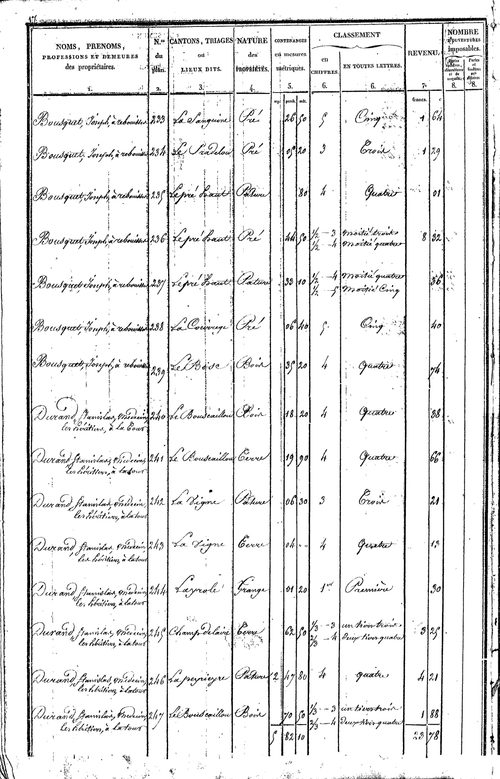 NOMS, PRENOMS,
PROFESSIONS ET DEMEURES
des propriétaires.
N.os
du
plan.
CANTONS, TRIAGES
ou
LIEUX DITS.
NATURE
des
PROPRIÉTÉS.
CONTENANCES
en mesures
métriques.
CLASSEMENT
en
CHIFFRES.
EN TOUTES LETTRES.
REVENU.
NOMBRE
D'OUVERTURES
imposables.
1. 2. 3. 4. 5. 6. 6. 7. 8. 8.
francs.
Bousquet, Joseph, à 233 La Sanguine Pré 26 50 5 Cinq 1 64
Bousquet, Joseph, à 234 Le Pradelou Pré 05 20 3 Trois 1 29
Bousquet, Joseph, à 235 Le pré haut Pature 80 4 Quatre 01
Bousquet, Joseph, à 236 Le pré haut Pré 44 50 1/2 - 3 moitié trois 8 32
1/2 - 4 moitié quatre
Bousquet, Joseph, à 237 Le pré haut Pature 33 10 1/2 - 4 Moitié quatre 56
1/2 - 5 Moitié Cinq
Bousquet, Joseph, à 238 La Pré 06 40 5 Cinq 40
Bousquet, Joseph, à 239 Le Bosc Bois 35 20 4 Quatre 74
Durand, Stanislas, médecin, 240 Le Bouscaillou Bois 18 20 4 Quatre 38
les héritiers, à la Tour
Durand, Stanislas, médecin, 241 Le Bouscaillou Terre 19 90 4 Quatre 66
les héritiers, à latour
Durand, Stanislas, médecin, 242 La Vigne Pature 06 30 3 Trois 21
les héritiers, à latour
Durand, Stanislas, médecin, 243 La Vigne Terre 04 -- 4 Quatre 13
les héritiers, à latour
Durand, Stanislas, médecin, 244 Layrolé Grange 01 20 1er Première 30
les héritiers, à latour
Durand, Stanislas, médecin, 245 Champ delaire Terre 62 50 1/3 - 3 un tiers trois 3 25
les héritiers, à latour 2/3 - 4 deux tiers quatre
Durand, Stanislas, médecin, 246 La peyrieyre Pature 2 47 80 4 quatre 4 21
les héritiers, à latour
Durand, Stanislas, médecin, 247 Le Bouscaillou Bois 70 50 1/3 - 3 un tiers trois 1 88
les héritiers, à latour 2/3 - 4 Deux tiers quatre
5 82 10 23 78